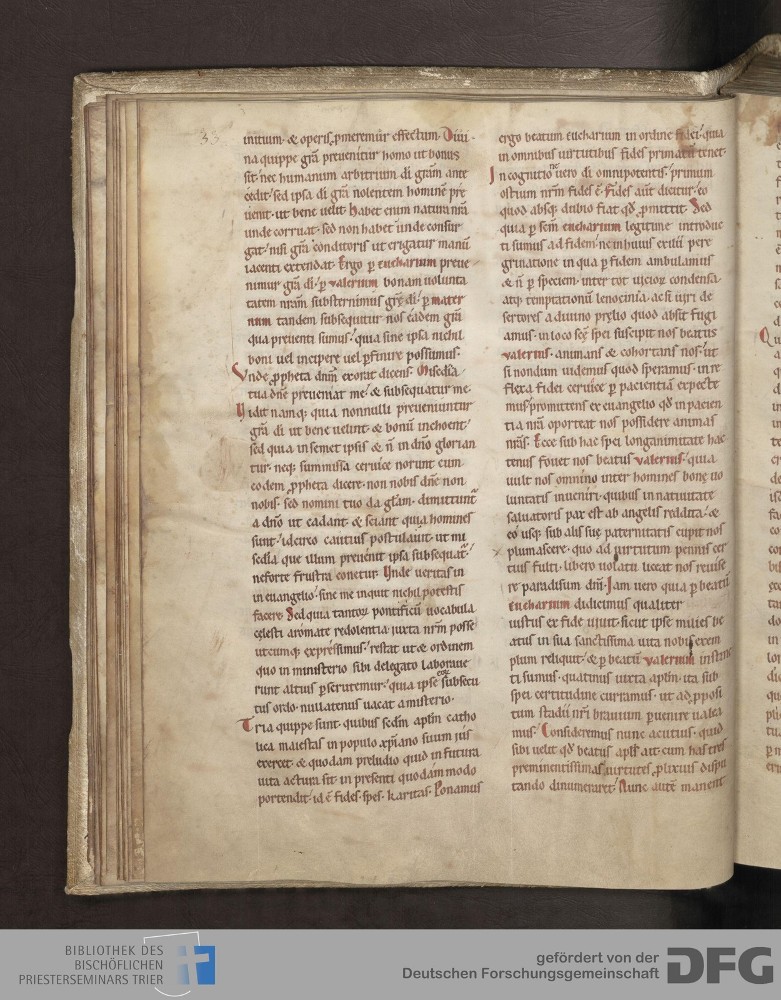 33
initium· & operis ꝓmeremur effectum· Diui-
na quippe gr̄a preuenitur homo ut bonus
sit· nec humanum arbitrium dī gr̄am ante
cedit· sed ipsa dī gr̄a nolentem hominē pre
uenit· ut bene uelit· habet enim natura nr̄a
unde corruat· sed non habet unde consur
gat· nisi gr̄a conditoris ut erigatur manū
iacenti extendat· Ergo ꝑ eucharium preue
nimur gr̄a dī· ꝑ ualerium bonam uolunta
tatem nr̄am substernimus grę dī· ꝑ mater
num tandem subsequitur nos eadem gr̄a
qua preuenti sumus· quia sine ipsa nichil
boni uel incipere uel ꝑfinire possumus·
Vnde ꝓpheta dn̄m exorat dicens· Misedīa
tua dn̄e preueniat me· & subsequatur me·
Uidit namq; quia nonnulli preueniuntur
gr̄a dī ut bene uelint· & bonū inchoent·
sed quia in semet ipsis & n̄ in dn̄o glorian
tur· neq; summissa ceruice norunt cum
eodem ꝓpheta dicere· non nobis dn̄e non
nobis· sed nomini tuo da gl̄am· dimittunt̄
a dn̄o ut cadant· & sciant quia homines
sunt· idcirco cautius postulauit· ut mi
sedīa que illum preuenit ipsa subsequat̄·
ne forte frustra conetur· Unde ueritas in
in euuangelio· sine me inquit nichil potestis
facere· Sed quia tantoꝝ pontificū uocabula
cęlesti aromate redolentia· iuxta nr̄m posse
utcumq; expressimus· restat ut & ordinem
quo in ministerio sibi delegato laboraue
runt altius ꝑscrutemur· quia ipse eoꝝ subsecu
tus ordo· nullatenus uacat a misterio·
Tria quippe sunt· quibus sedm̄ aptm̄ catho
lica maiestas in populo xp̄iano suum ius
exercet· & quodam preludio quid in futura
uita actura sit· in presenti quodam modo
portendit· id ē fides· spes· karitas· Ponamus
ergo beatum eucharium in ordine fidei· quia
in omnibus uirtutibus fides primatū tenet·
In cognitione uero dī omnipotentis· primum
ostium nr̄m fides ē· Fides aūt dicitur· eo
quod absq; dubio fiat qd̄ ꝓmittit· Sed
quia ꝑ sc̄m eucharium legitime introduc
ti sumus ad fidem· ne in huius exilii pere
grinatione in qua ꝑ fidem ambulamus
& n̄ ꝑ speciem· inter tot uicioꝝ condensa·
atq; temptationū lenocinia· ac si uiri de
sertores a diuino prelio quod absit fugi
amus· in loco sc̄ę spei suscipit nos beatus
ualerius· animans & cohortans nos· ut
si nondum uidemus quod speramus· in re
flexa fidei ceruice ꝑ pacientiā expecte
mus· promittens ex euangelio qd̄ in pacien
tia nr̄a oporteat nos possidere animas
nr̄as· Ecce sub hac spei longanimitate hac
tenus fouet nos beatus ualerius· quia
uult nos omnino inter homines bonę uo
luntatis inueniri· quibus in natiuitate
saluatoris pax est ab angelis reddita· &
eo usq; sub alis suę paternitatis cupit nos
plumascere· quo ad uirtutum pennis cer
tius fulti· libero uolatu liceat nos reuise
re paradisum dn̄i· Iam uero quia ꝑ beatū
eucharium didicimus qualiter
iustus ex fide uiuit· sicut ipse miles be
atus in sua sanctissima uita nobis exem
plum reliquit· & ꝑ beatū ualerium instruc
ti sumus· quatinus iuxta aptm̄· ita sub
spei certitudine curramus· ut ad ꝓposi
tum stadii nr̄i brauium ꝑuenire ualea
mus· Consideremus nunc acutius· quid
sibi uelit qd̄ beatus apls̄ ait· cum has tres
preminentissimas uirtutes ꝓlixius dispu
tando dinumeraret· Nunc autē manent
BIBLIOTHEK DES
BISCHÖFLICHEN
PRIESTERSEMINARS TRIER
gefördert von der
Deutschen Forschungsgemeinschaft
DFG